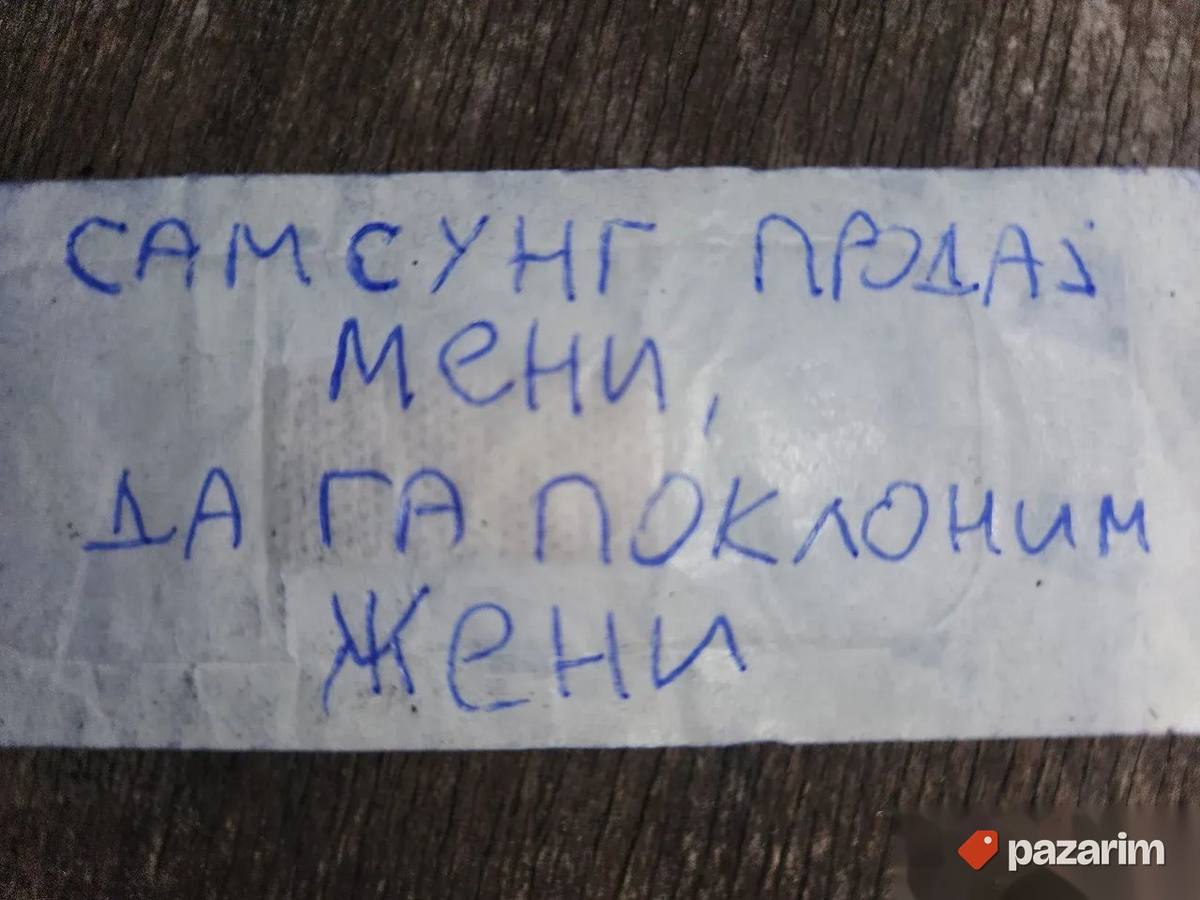 САМСУНГ ПРОДАЈ
МЕНИ,
ДА ГА ПОКЛОНИМ
ЖЕНИ
pazarim